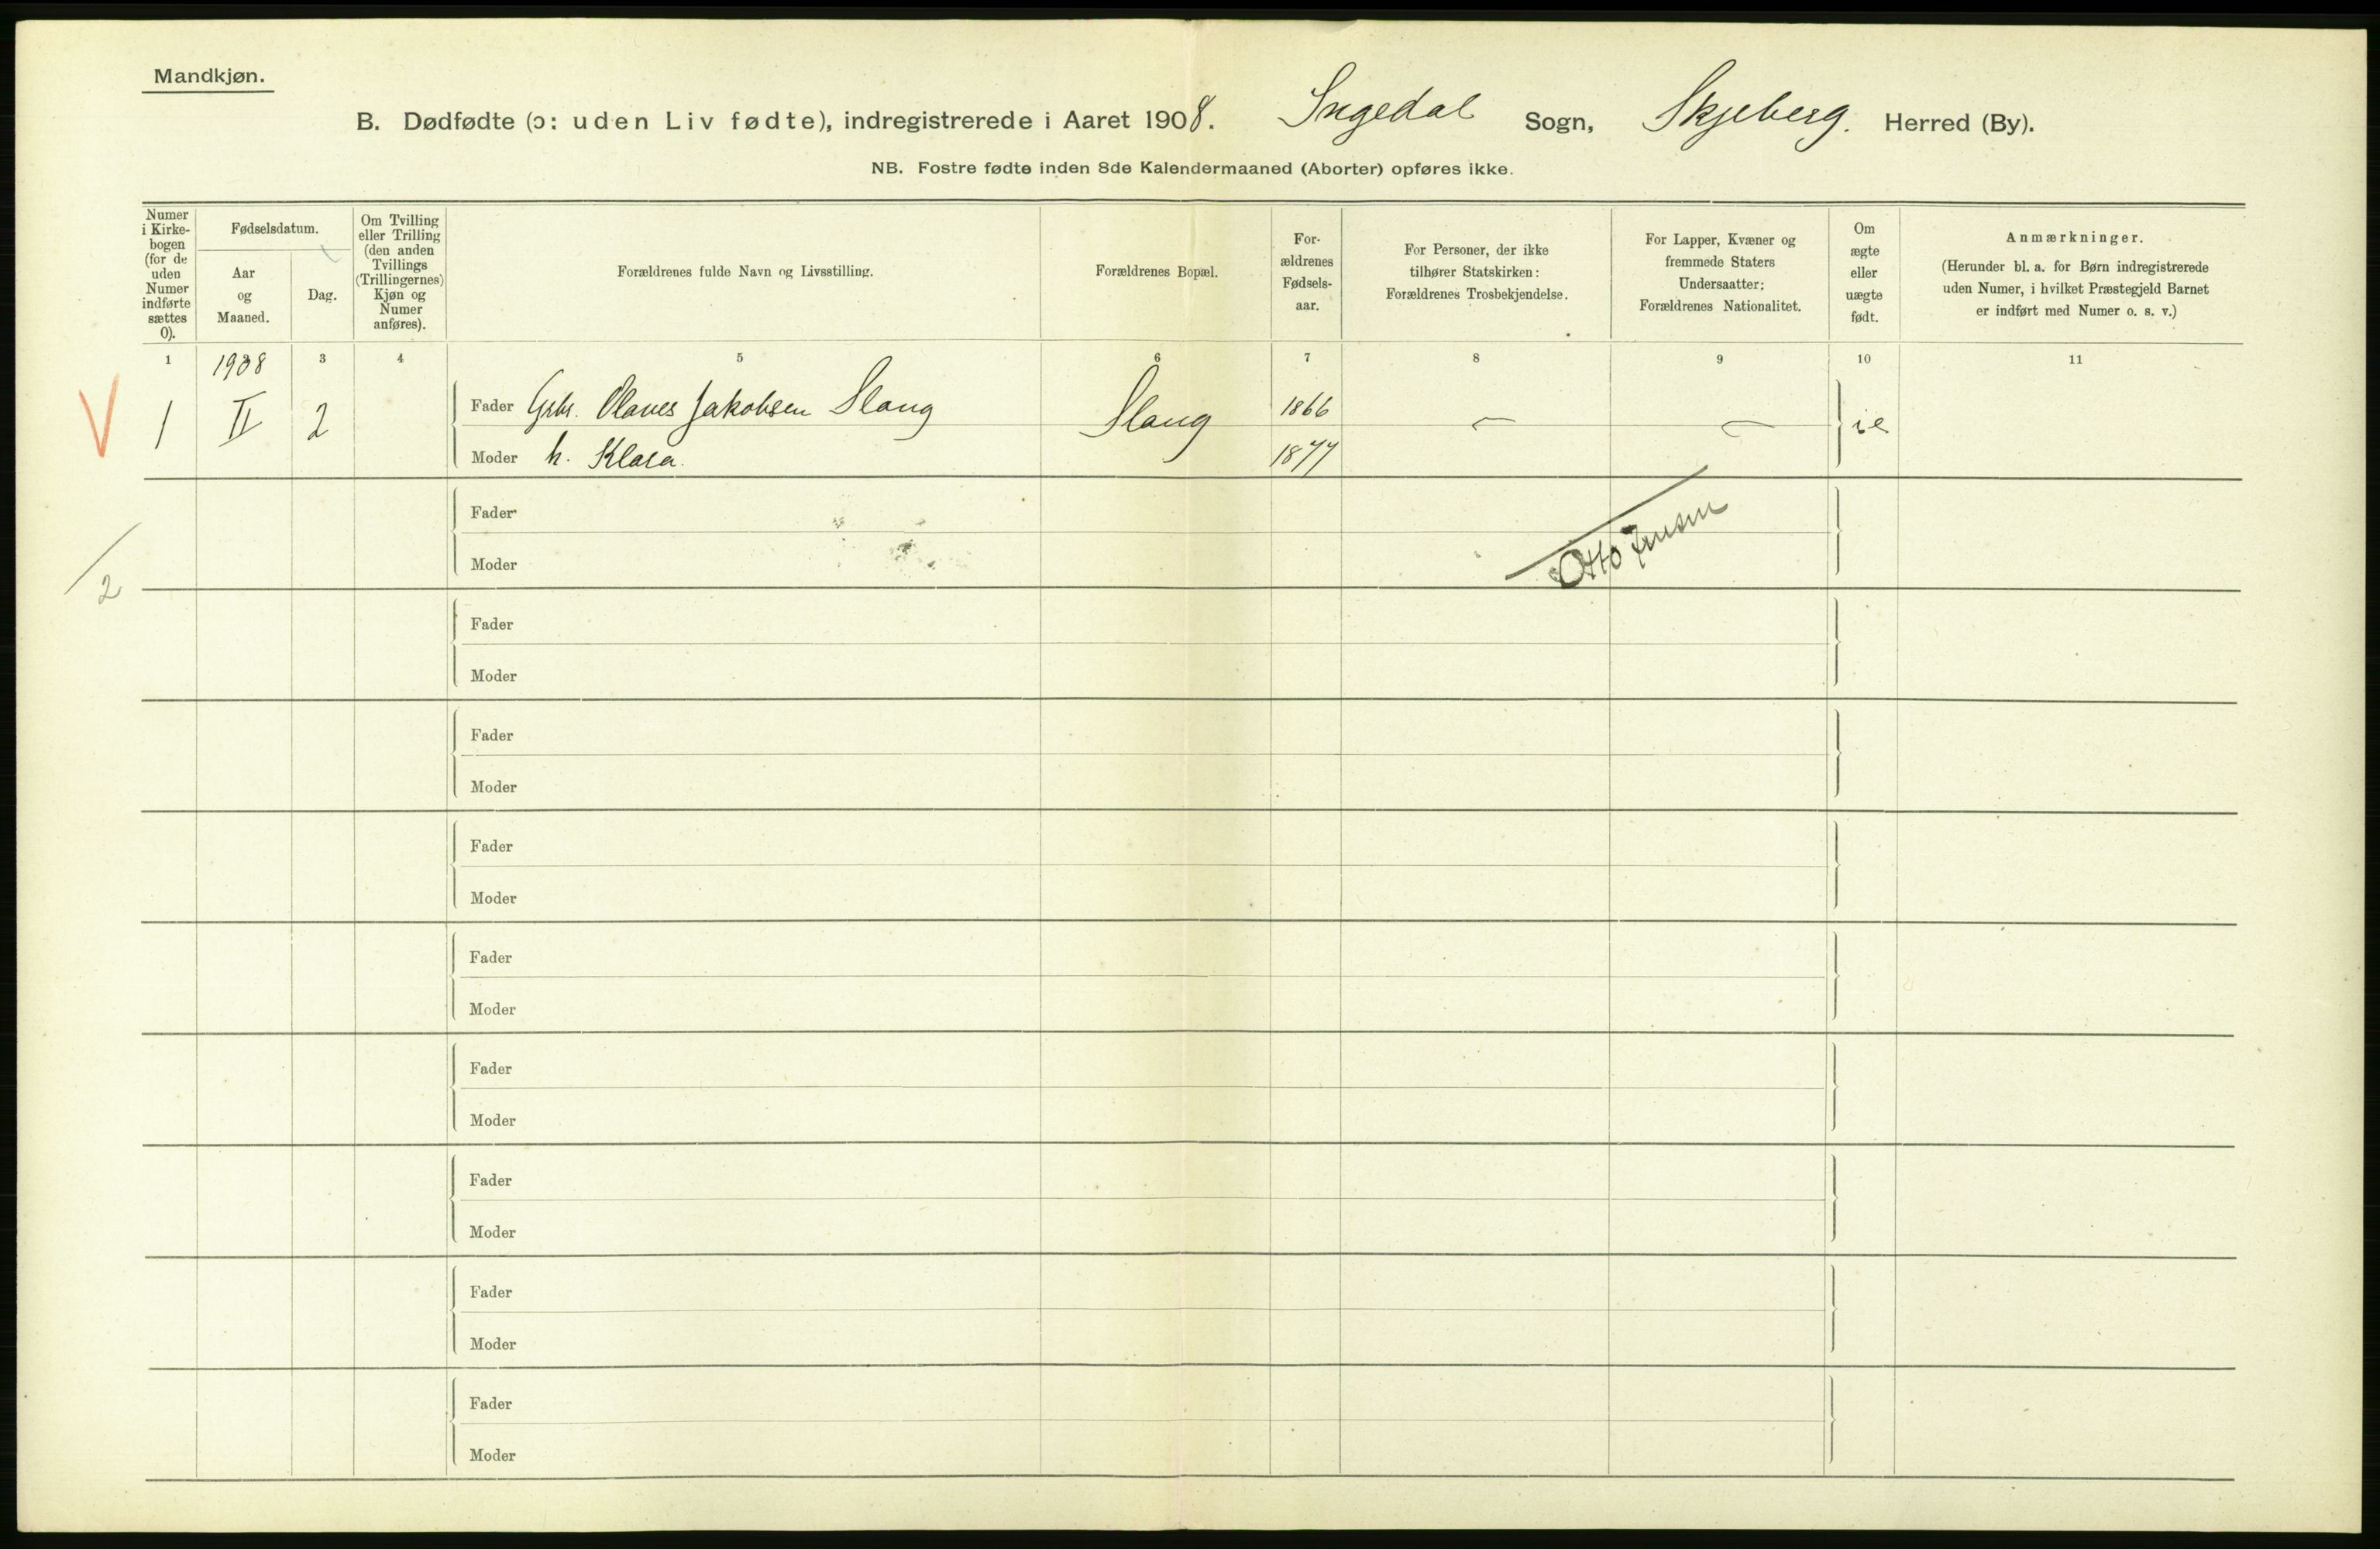 Mandkjøn.
B. Dødfødte (ɔ: uden Liv fødte), indregistrerede i Aaret 1908. Ingedal Sogn, Skjeberg. Herred (By).
NB. Fostre fødte inden 8de Kalendermaaned (Aborter) opføres ikke.
Numer i Kirkebogen (for de uden Numer indførte sættes 0).
Fødselsdatum.
Aar og Maaned.
Dag.
Om Tvilling eller Trilling (den anden Tvillings (Trillingernes) Kjøn og Numer anføres).
Forældrenes fulde Navn og Livsstilling.
Forældrenes Bopæl.
Forældrenes Fødselsaar.
For Personer, der ikke tilhører Statskirken: Forældrenes Trosbekjendelse.
For Lapper, Kvæner og fremmede Staters Undersaatter: Forældrenes Nationalitet.
Om ægte eller uægte født.
Anmærkninger.
(Herunder bl. a. for Børn indregistrerede uden Numer, i hvilket Præstegjeld Barnet er indført med Numer o. s. v.)
1 1908 3 4 5 6 7 8 9 10 11
V 1 II 2 Fader Grbr. Olaves Jakobsen Slang Slang 1866 — — ie
Moder h. Klara. 1877
Fader
Otto Jensen
Moder
2
Fader
Moder
Fader
Moder
Fader
Moder
Fader
Moder
Fader
Moder
Fader
Moder
Fader
Moder
Fader
Moder